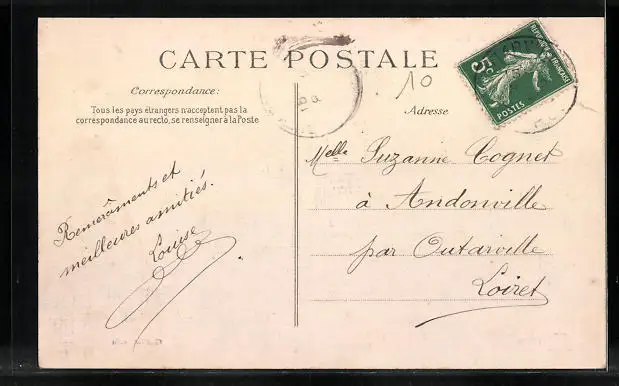 CARTE POSTALE
Correspondance:
Tous les pays étrangers n'acceptent pas la
correspondance au recto, se renseigner à la Poste
Remerâments et
meilleures amitiés.
Louise
10
Adresse
REPUBLIQUE FRANÇAISE
5c
POSTES
Melle Suzanne Cognet
à Andonville
par Outarville
Loiret